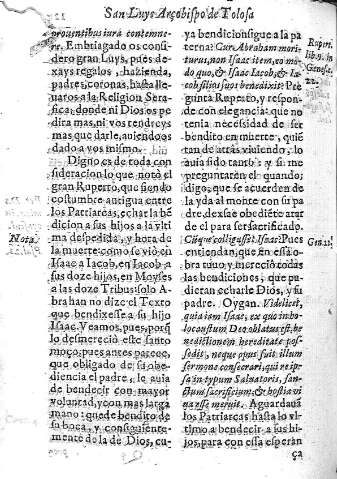 San Luys Arçobispo de Tolosa
prouentibus iura contemne-
re. Embriagado os consi-
dero gran Luys, pues de-
xays regalos, hazienda,
padres, coronas, hasta lle-
uaros a la Religion Sera-
fica: donde ni Dios os pe-
dira mas, ni vos tendreys
mas que darle, auiendoos
dado a vos mismo.
Digno es de toda con-
sideracion lo que notò el
gran Ruperto, que siendo
costumbre antigua entre
los Patriarcas, echar la bē
dicion a sus hijos a la vlti
ma despedida, y hora de
la muerte: como se viò en
Isaac a Iacob, en Iacob a
sus doze hijos, en Moyses
a las doze Tribus: solo A-
brahan no dize el Texto
que bendixesse a su hijo
Isaac. Veamos, pues, porq̄
lo desmereciò este santo
moço, pues antes parece,
que obligado de su obe-
diencia el padre, le auia
de bendecir con mayor
voluntad, y con mas larga
mano: quede bendito de
su boca, y consiguiente-
mente de la de Dios, cu-
Nota.
ya bendicion sigue a la pa
terna? Cur Abraham mori-
turus, non Isaac item, eo mo
do quo, & Isaac Iacob, & Ia-
cob filios suos benedixit? Pre
gunta Ruperto, y respon-
de con elegancia: que no
tenia necessidad de ser
bendito en muerte, quiē
tan de atràs viuiendo, lo
auia sido tanto: y si me
preguntaren el quando;
digo, que se acuerden de
la yda al monte con su pa
dre, dexase obediēte atar
de el para ser sacrificado.
Cũque colligasset Isaac: Pues
entiendan, que en essa o-
bra tuuo y mereciò todas
las bendiciones, que pu-
dieran echarle Dios, y su
padre. Oygan. Videlicet,
quia iam Isaac, ex quo inho-
locaustum Deo oblatus est, be
nedictionem hereditate pos-
sedit, neque opus fuit illum
sermone consecrari, qui re ip-
sa in typum Saluatoris, san-
ctum sacrificium, & hostia vi
ua esse meruit. Aguardauã
los Patriarcas hasta lo vl-
timo a bendecir a sus hi-
jos, para con essa esperan
ça
Rupert.
lib. 9. in
Genes. c.
22.
Gen. 22.